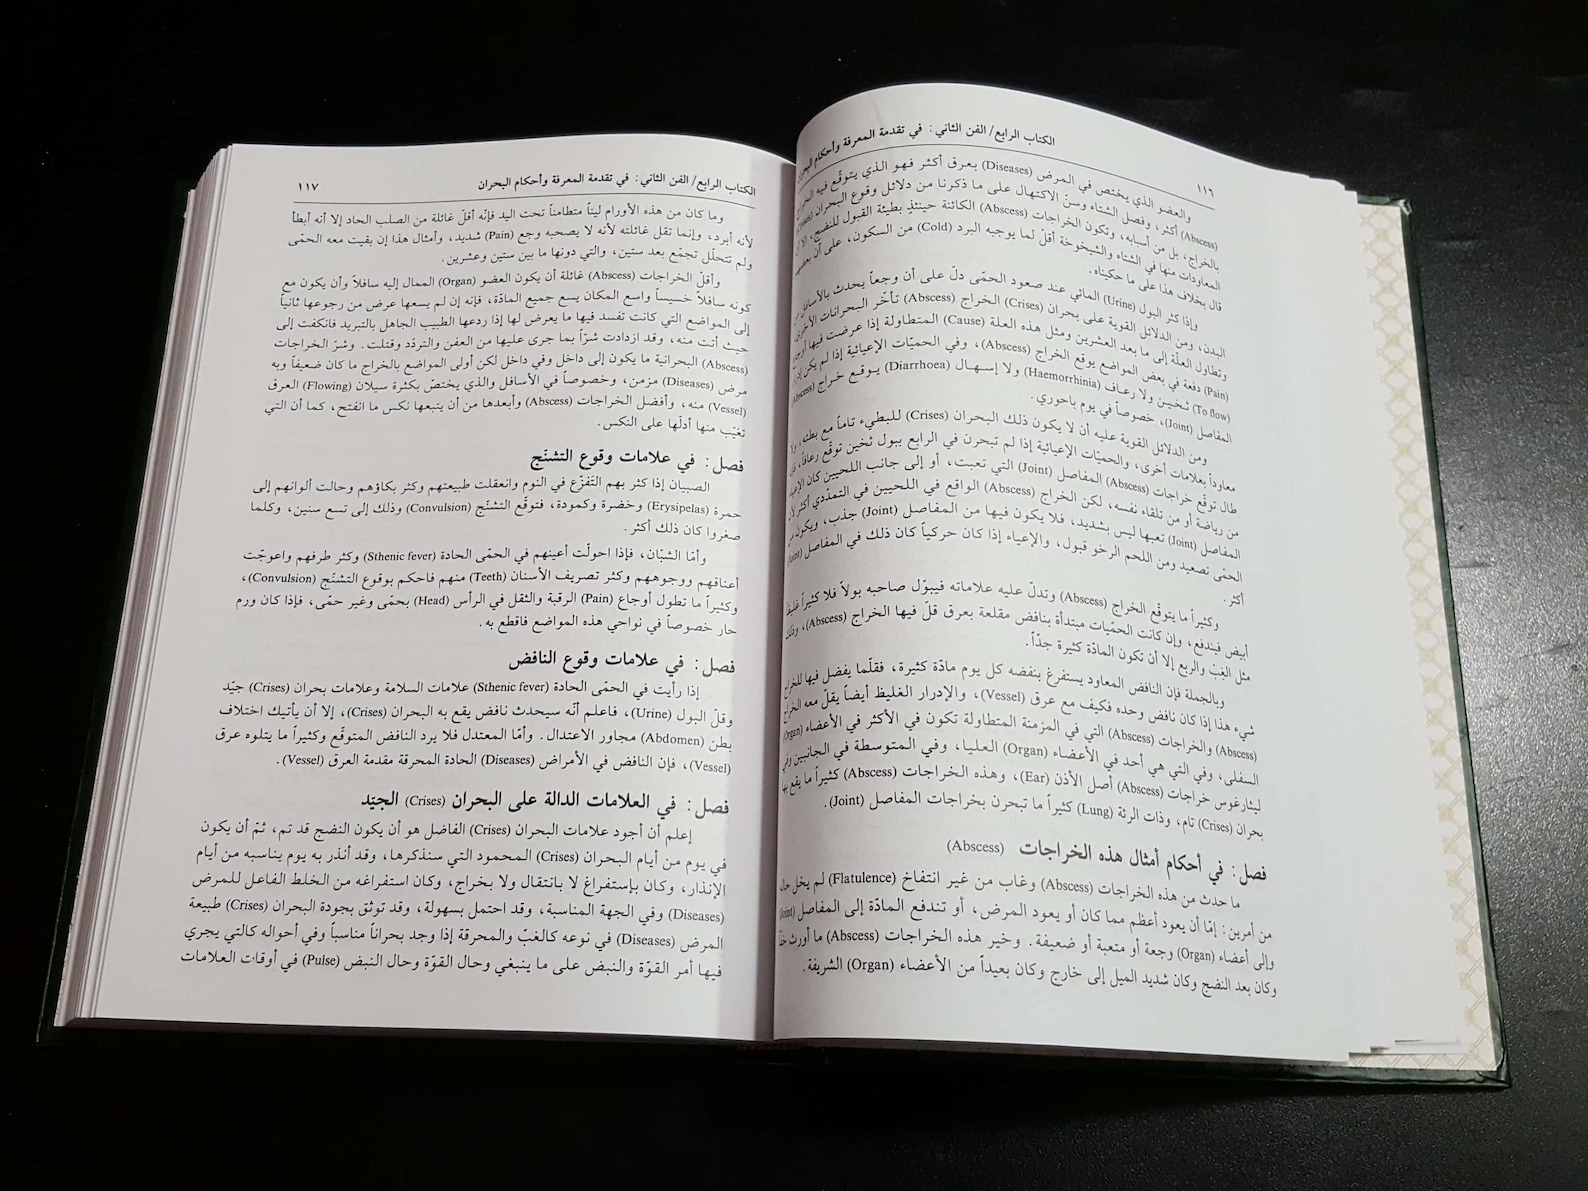 الكتاب الرابع/ الفن الثاني: في تقدمة المعرفة وأحكام
١١٦
والعضو الذي يختص في المرض (Diseases) بعرق أكثر فهو الذي يتوقّع فيه
(Abscess) أكثر، وفصل الشتاء وسنّ الاكتهال على ما ذكرنا من دلائل وقوع البحران
بالخراج، بل من أسبابه، وتكون الخراجات (Abscess) الكائنة حينئذٍ بطيئة القبول للنضج، إلا أن
المعاودات منها في الشتاء والشيخوخة أقلّ لما يوجبه البرد (Cold) من السكون، على أن بعضهم
قال بخلاف هذا على ما حكيناه.
وإذا كثر البول (Urine) المائي عند صعود الحمّى دلّ على أن وجعاً يحدث بالأسافل من
البدن، ومن الدلائل القوية على بحران (Crises) الخراج (Abscess) تأخّر البحرانات الأخرى،
وتطاول العلّة إلى ما بعد العشرين ومثل هذه العلة (Cause) المتطاولة إذا عرضت فيها أوجاع
(Pain) دفعة في بعض المواضع يوقع الخراج (Abscess)، وفي الحميّات الإعيائية إذا لم يكن إدرار
(To flow) ثخين ولا رعاف (Haemorrhinia) ولا إسهال (Diarrhoea) يوقع خراج (Abscess)
المفاصل (Joint)، خصوصاً في يوم باحوري.
ومن الدلائل القوية عليه أن لا يكون ذلك البحران (Crises) للبطيء تاماً مع بطئه، ولا
معاوداً بعلامات أخرى، والحميّات الإعيائية إذا لم تبحرن في الرابع ببول ثخين توقّع رعافاً، فإن
طال توقّع خراجات (Abscess) المفاصل (Joint) التي تعبت، أو إلى جانب اللحيين كان الإعياء
من رياضة أو من تلقاء نفسه، لكن الخراج (Abscess) الواقع في اللحيين في التمدّدي أكثر لأن
المفاصل (Joint) تعبها ليس بشديد، فلا يكون فيها من المفاصل (Joint) جذب، ويكون من
الحمّى تصعيد ومن اللحم الرخو قبول، والإعياء إذا كان حركياً كان ذلك في المفاصل (Joint)
أكثر.
وكثيراً ما يتوقّع الخراج (Abscess) وتدلّ عليه علاماته فيبوّل صاحبه بولاً فلا كثيراً غليظاً
أبيض فيندفع، وإن كانت الحمّيات مبتدأة بنافض مقلعة بعرق قلّ فيها الخراج (Abscess)، وذلك
مثل الغب والربع إلا أن تكون المادّة كثيرة جدّاً.
وبالجملة فإن النافض المعاود يستفرغ بنفضه كل يوم مادّة كثيرة، فقلّما يفضل فيها للخراج
شيء هذا إذا كان نافض وحده فكيف مع عرق (Vessel)، والإدرار الغليظ أيضاً يقلّ معه الخراج
(Abscess) والخراجات (Abscess) التي في المزمنة المتطاولة تكون في الأكثر في الأعضاء (Organ)
السفلى، وفي التي هي أحد في الأعضاء (Organ) العليا، وفي المتوسطة في الجانبين وفي
ليثارغوس خراجات (Abscess) أصل الأذن (Ear)، وهذه الخراجات (Abscess) كثيراً ما يقع بها
بحران (Crises) تام، وذات الرئة (Lung) كثيراً ما تبحرن بخراجات المفاصل (Joint).
فصل: في أحكام أمثال هذه الخراجات (Abscess)
ما حدث من هذه الخراجات (Abscess) وغاب من غير انتفاخ (Flatulence) لم يخل حاله
من أمرين: إمّا أن يعود أعظم مما كان أو يعود المرض، أو تندفع المادّة إلى المفاصل (Joint)
وإلى أعضاء (Organ) وجعة أو متعبة أو ضعيفة. وخير هذه الخراجات (Abscess) ما أورث
وكان بعد النضج وكان شديد الميل إلى خارج وكان بعيداً من الأعضاء (Organ) الشريفة.
الكتاب الرابع/ الفن الثاني: في تقدمة المعرفة وأحكام البحران
١١٧
وما كان من هذه الأورام ليناً متطامناً تحت اليد فإنّه أقلّ غائلة من الصلب الحاد إلا أنه أبطأ
لأنه أبرد، وإنما تقل غائلته لأنه لا يصحبه وجع (Pain) شديد، وأمثال هذا إن بقيت معه الحمّى
ولم تتحلّل تجمّع بعد ستين، والتي دونها ما بين ستين وعشرين.
وأقلّ الخراجات (Abscess) غائلة أن يكون العضو (Organ) الممال إليه سافلاً وأن يكون مع
كونه سافلاً خسيساً واسع المكان يسع جميع المادّة، فإنه إن لم يسعها عرض من رجوعها ثانياً
إلى المواضع التي كانت تفسد فيها ما يعرض لها إذا ردعها الطبيب الجاهل بالتبريد فانكفت إلى
حيث أتت منه، وقد ازدادت شرّاً بما جرى عليها من العفن والتردّد وقتلت. وشرّ الخراجات
(Abscess) البحرانية ما يكون إلى داخل وفي داخل لكن أولى المواضع بالخراج ما كان ضعيفاً وبه
مرض (Diseases) مزمن، وخصوصاً في الأسافل والذي يختصّ بكثرة سيلان (Flowing) العرق
(Vessel) منه، وأفضل الخراجات (Abscess) وأبعدها من أن يتبعها نكس ما انفتح، كما أن التي
تغيّب منها أدلّها على النكس.
فصل: في علامات وقوع التشنّج
الصبيان إذا كثر بهم التّفزّع في النوم وانعقلت طبيعتهم وكثر بكاؤهم وحالت ألوانهم إلى
حمرة (Erysipelas) وخضرة وكمودة، فتوقّع التشنّج (Convulsion) وذلك إلى تسع سنين، وكلما
صغروا كان ذلك أكثر.
وأمّا الشبّان، فإذا احولّت أعينهم في الحمّى الحادة (Sthenic fever) وكثر طرفهم واعوجّت
أعناقهم ووجوههم وكثر تصريف الأسنان (Teeth) منهم فاحكم بوقوع التشنّج (Convulsion)،
وكثيراً ما تطول أوجاع (Pain) الرقبة والثقل في الرأس (Head) بحمّى وغير حمّى، فإذا كان ورم
حار خصوصاً في نواحي هذه المواضع فاقطع به.
فصل: في علامات وقوع النافض
إذا رأيت في الحمّى الحادة (Sthenic fever) علامات السلامة وعلامات بحران (Crises) جيّد
وقلّ البول (Urine)، فاعلم أنّه سيحدث نافض يقع به البحران (Crises)، إلا أن يأتيك اختلاف
بطن (Abdomen) مجاور الاعتدال. وأمّا المعتدل فلا يرد النافض المتوقّع وكثيراً ما يتلوه عرق
(Vessel)، فإن النافض في الأمراض (Diseases) الحادة المحرقة مقدمة العرق (Vessel).
فصل: في العلامات الدالة على البحران (Crises) الجيّد
إعلم أن أجود علامات البحران (Crises) الفاضل هو أن يكون النضج قد تم، ثمّ أن يكون
في يوم من أيام البحران (Crises) المحمود التي سنذكرها، وقد أنذر به يوم يناسبه من أيام
الإنذار، وكان بإستفراغ لا بانتقال ولا بخراج، وكان استفراغه من الخلط الفاعل للمرض
(Diseases) وفي الجهة المناسبة، وقد احتمل بسهولة، وقد توثق بجودة البحران (Crises) طبيعة
المرض (Diseases) في نوعه كالغبّ والمحرقة إذا وجد بحراناً مناسباً وفي أحواله كالتي يجري
فيها أمر القوّة والنبض على ما ينبغي وحال القوّة وحال النبض (Pulse) في أوقات العلامات